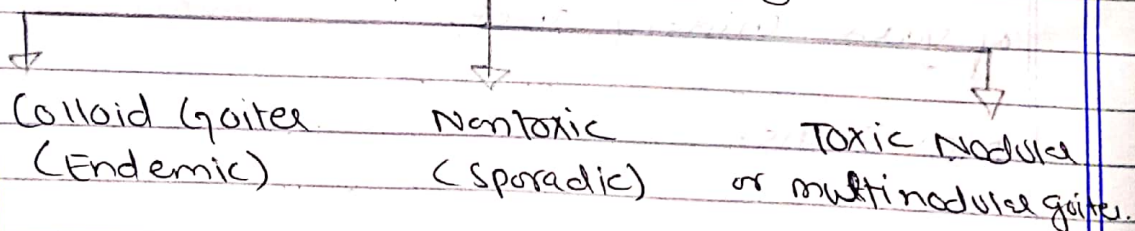 Colloid Goiter
(Endemic)
Nontoxic
(Sporadic)
Toxic Nodular
or multinodular goiter.